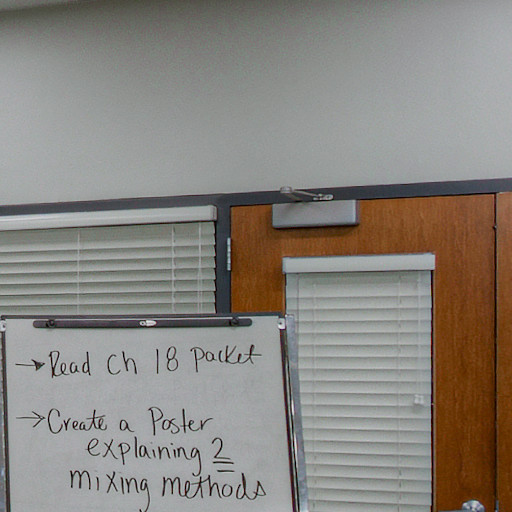 →Read Ch 18 Packet
→Create a Poster
explaining 2
mixing methods